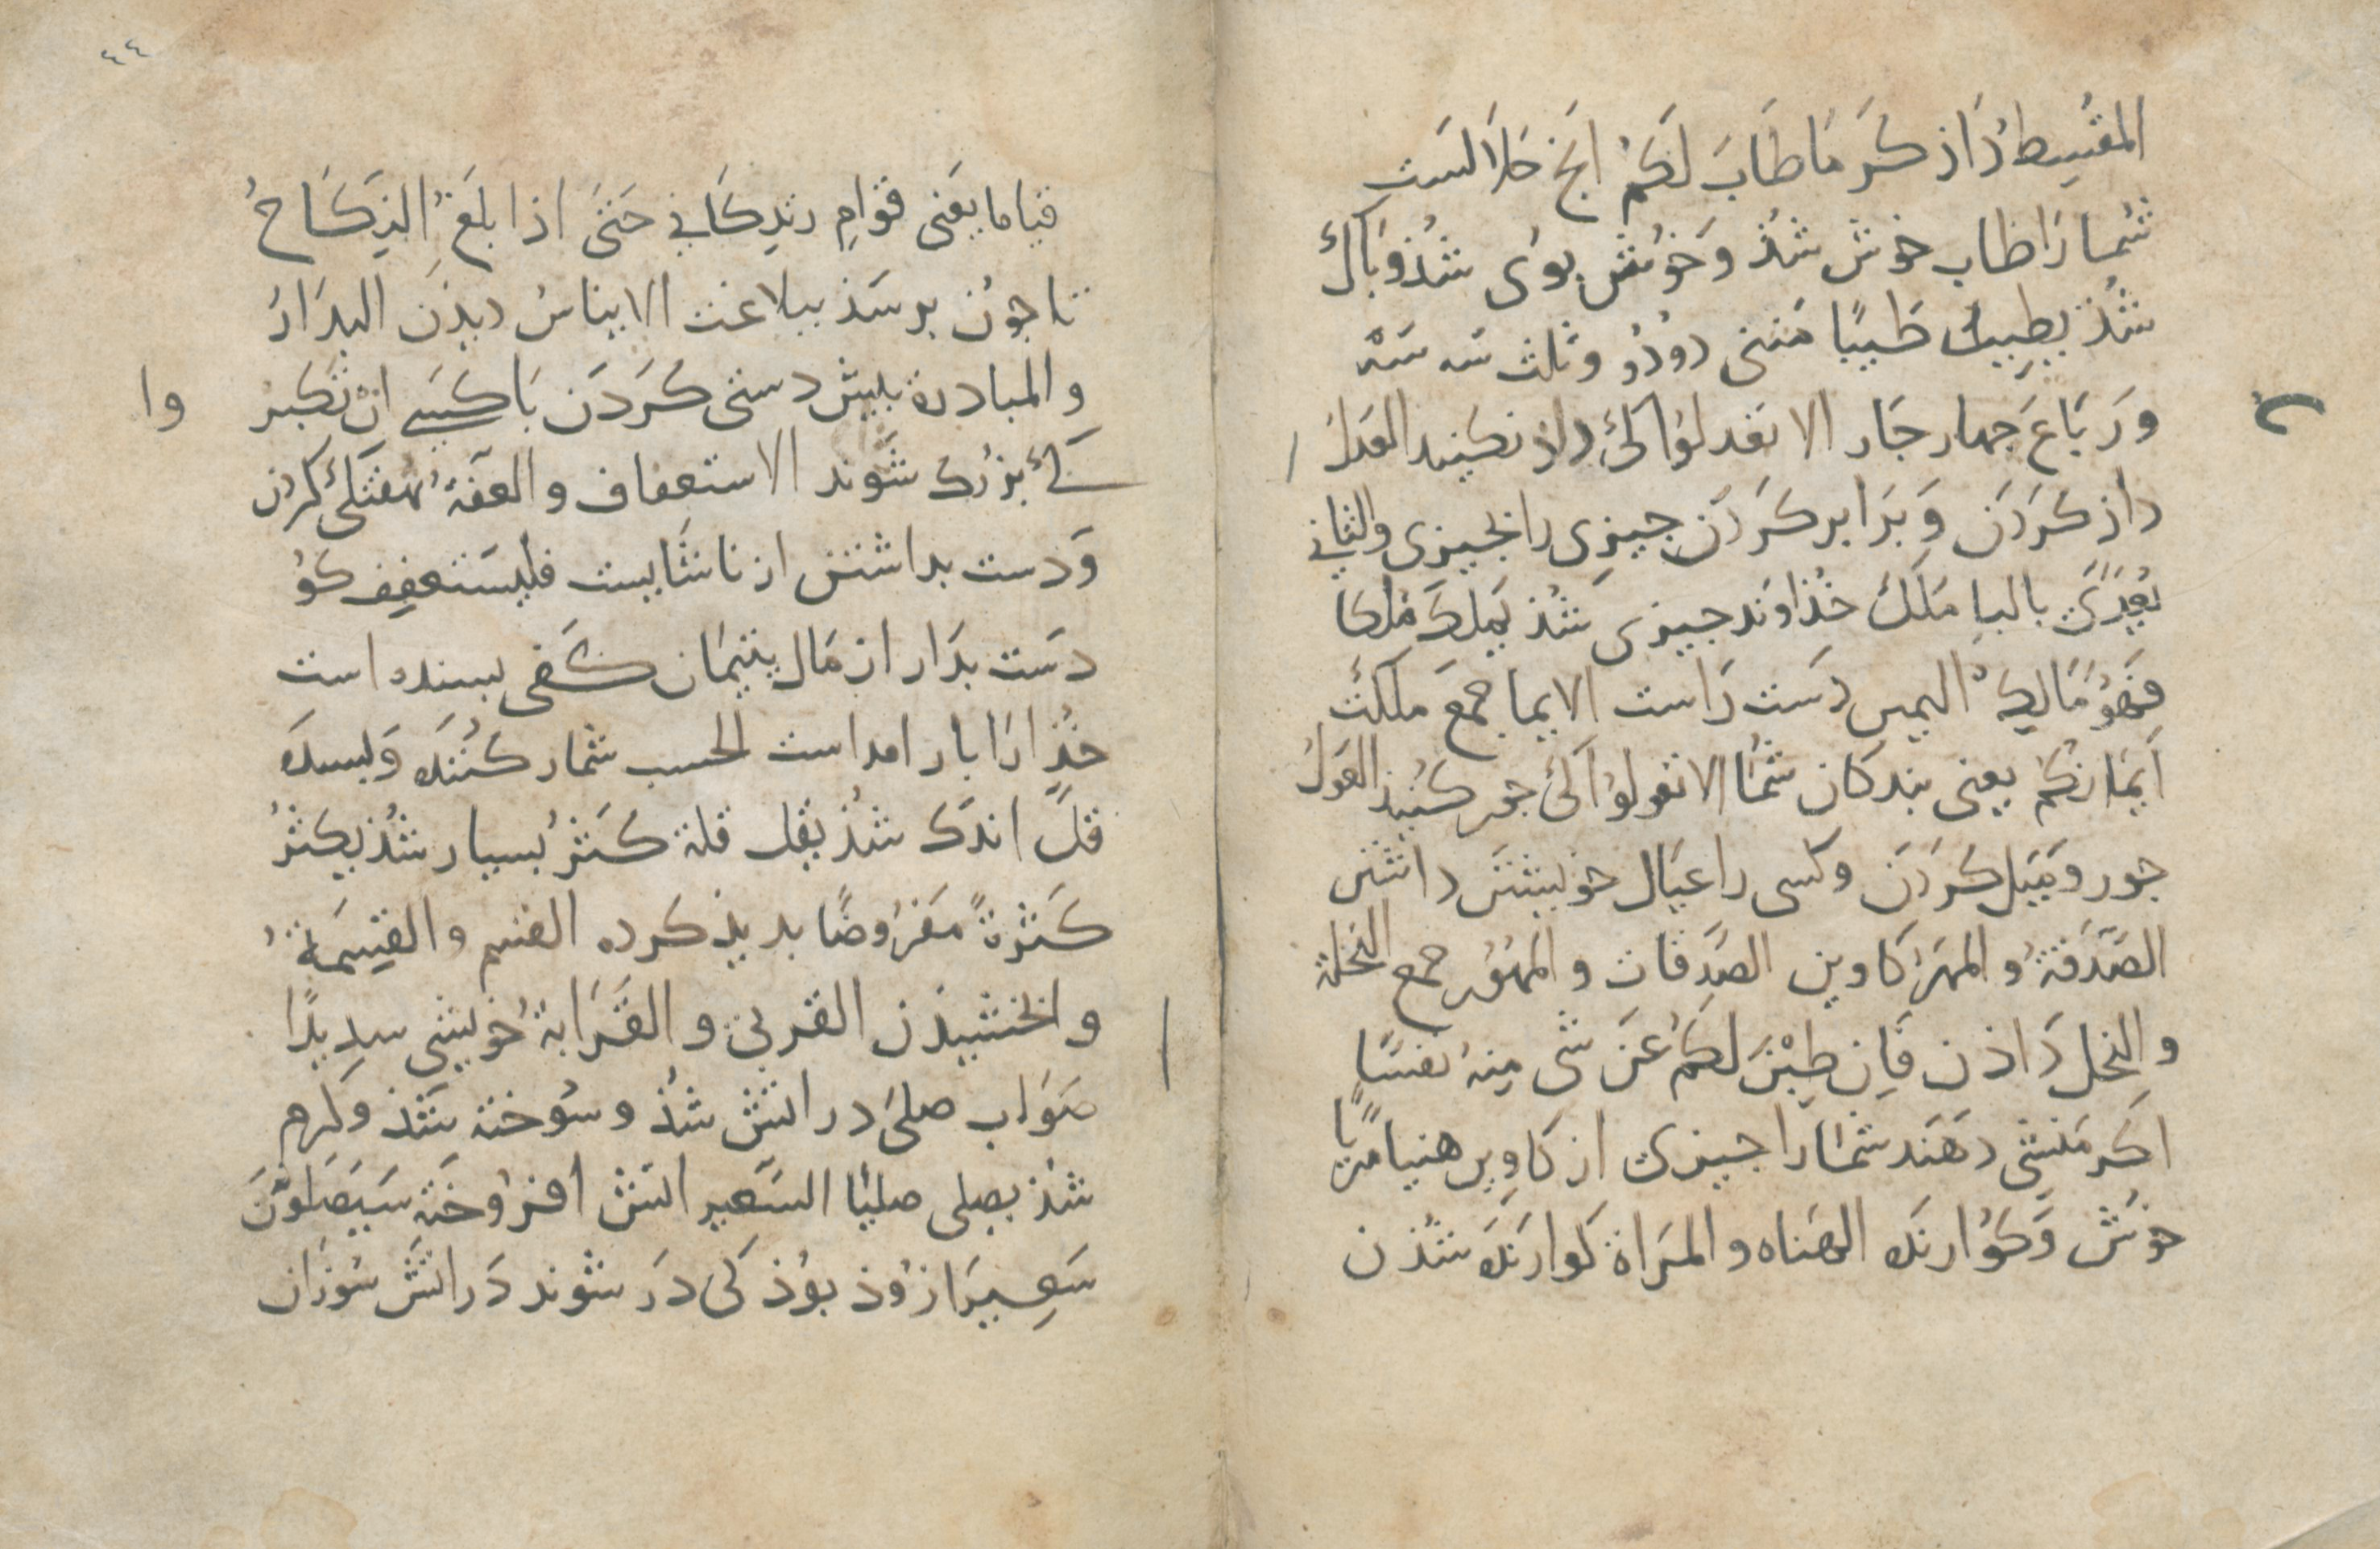 المقسط داذكر ما طاب لكم انج حلال است
شما را طاب خوش شذ و خوش بوى شذ و باك
شذ يطيب طيبا مثنى دو دو وثلث سه سه
ورباع جهار جار الا تعدلوا كى داذ نكنيد العدل
داذ كردن و برابر كردن جيزى را بجيزى والثانى
يعدى بالبا ملك خذاوند جيزى شذ يملك ملكا
فهو مالك اليمين دست راست الايما جمع ملكت
ايمانكم يعنى بندكان شما الا تعولوا كى جور كنيد العول
جور و ميل كردن وكسى را عيال خويشتن داشتن
الصدقة و المهر كاوين الصدقات و المهور جمع النحلة
و النحل داذن فان طبن لكم عن شى منه نفسا
اكر منشى دهند شما را جيزى از كاوين هنيا مريا
خوش وكوارنده الهناه و المراة كوارنده شذن
٤٤
قياما يعنى قوام زندكانى حتى اذا بلغ النكاح
تا جون برسذ ببلاغت الايناس ديذن البدار
و المبادرة بيش دستى كردن با كسى ان تكبر وا
كى بزرك شوند الاستعفاف و العفة نهفتكى كردن
و دست بداشتن از ناشايست فليستعفف كو
دست بدار از مال يتيمان كفى بسنده است
خذا را بار امد است الحسب شمار كننده و بسنده
قل اندك شذ يقل قلة كثر بسيار شذ يكثر
كثرة مفروضا بديذ كرده القسم و القسمة
و ا بخشيذن القربى و القرابة خويشى سديدا
صواب صلى در اتش شذ و سوخته شذ وكرم
شذ يصلى صليا السعير اتش افروخته سيصلون
سعيرا زوذ بوذ كى در شوند در اتش سوزان